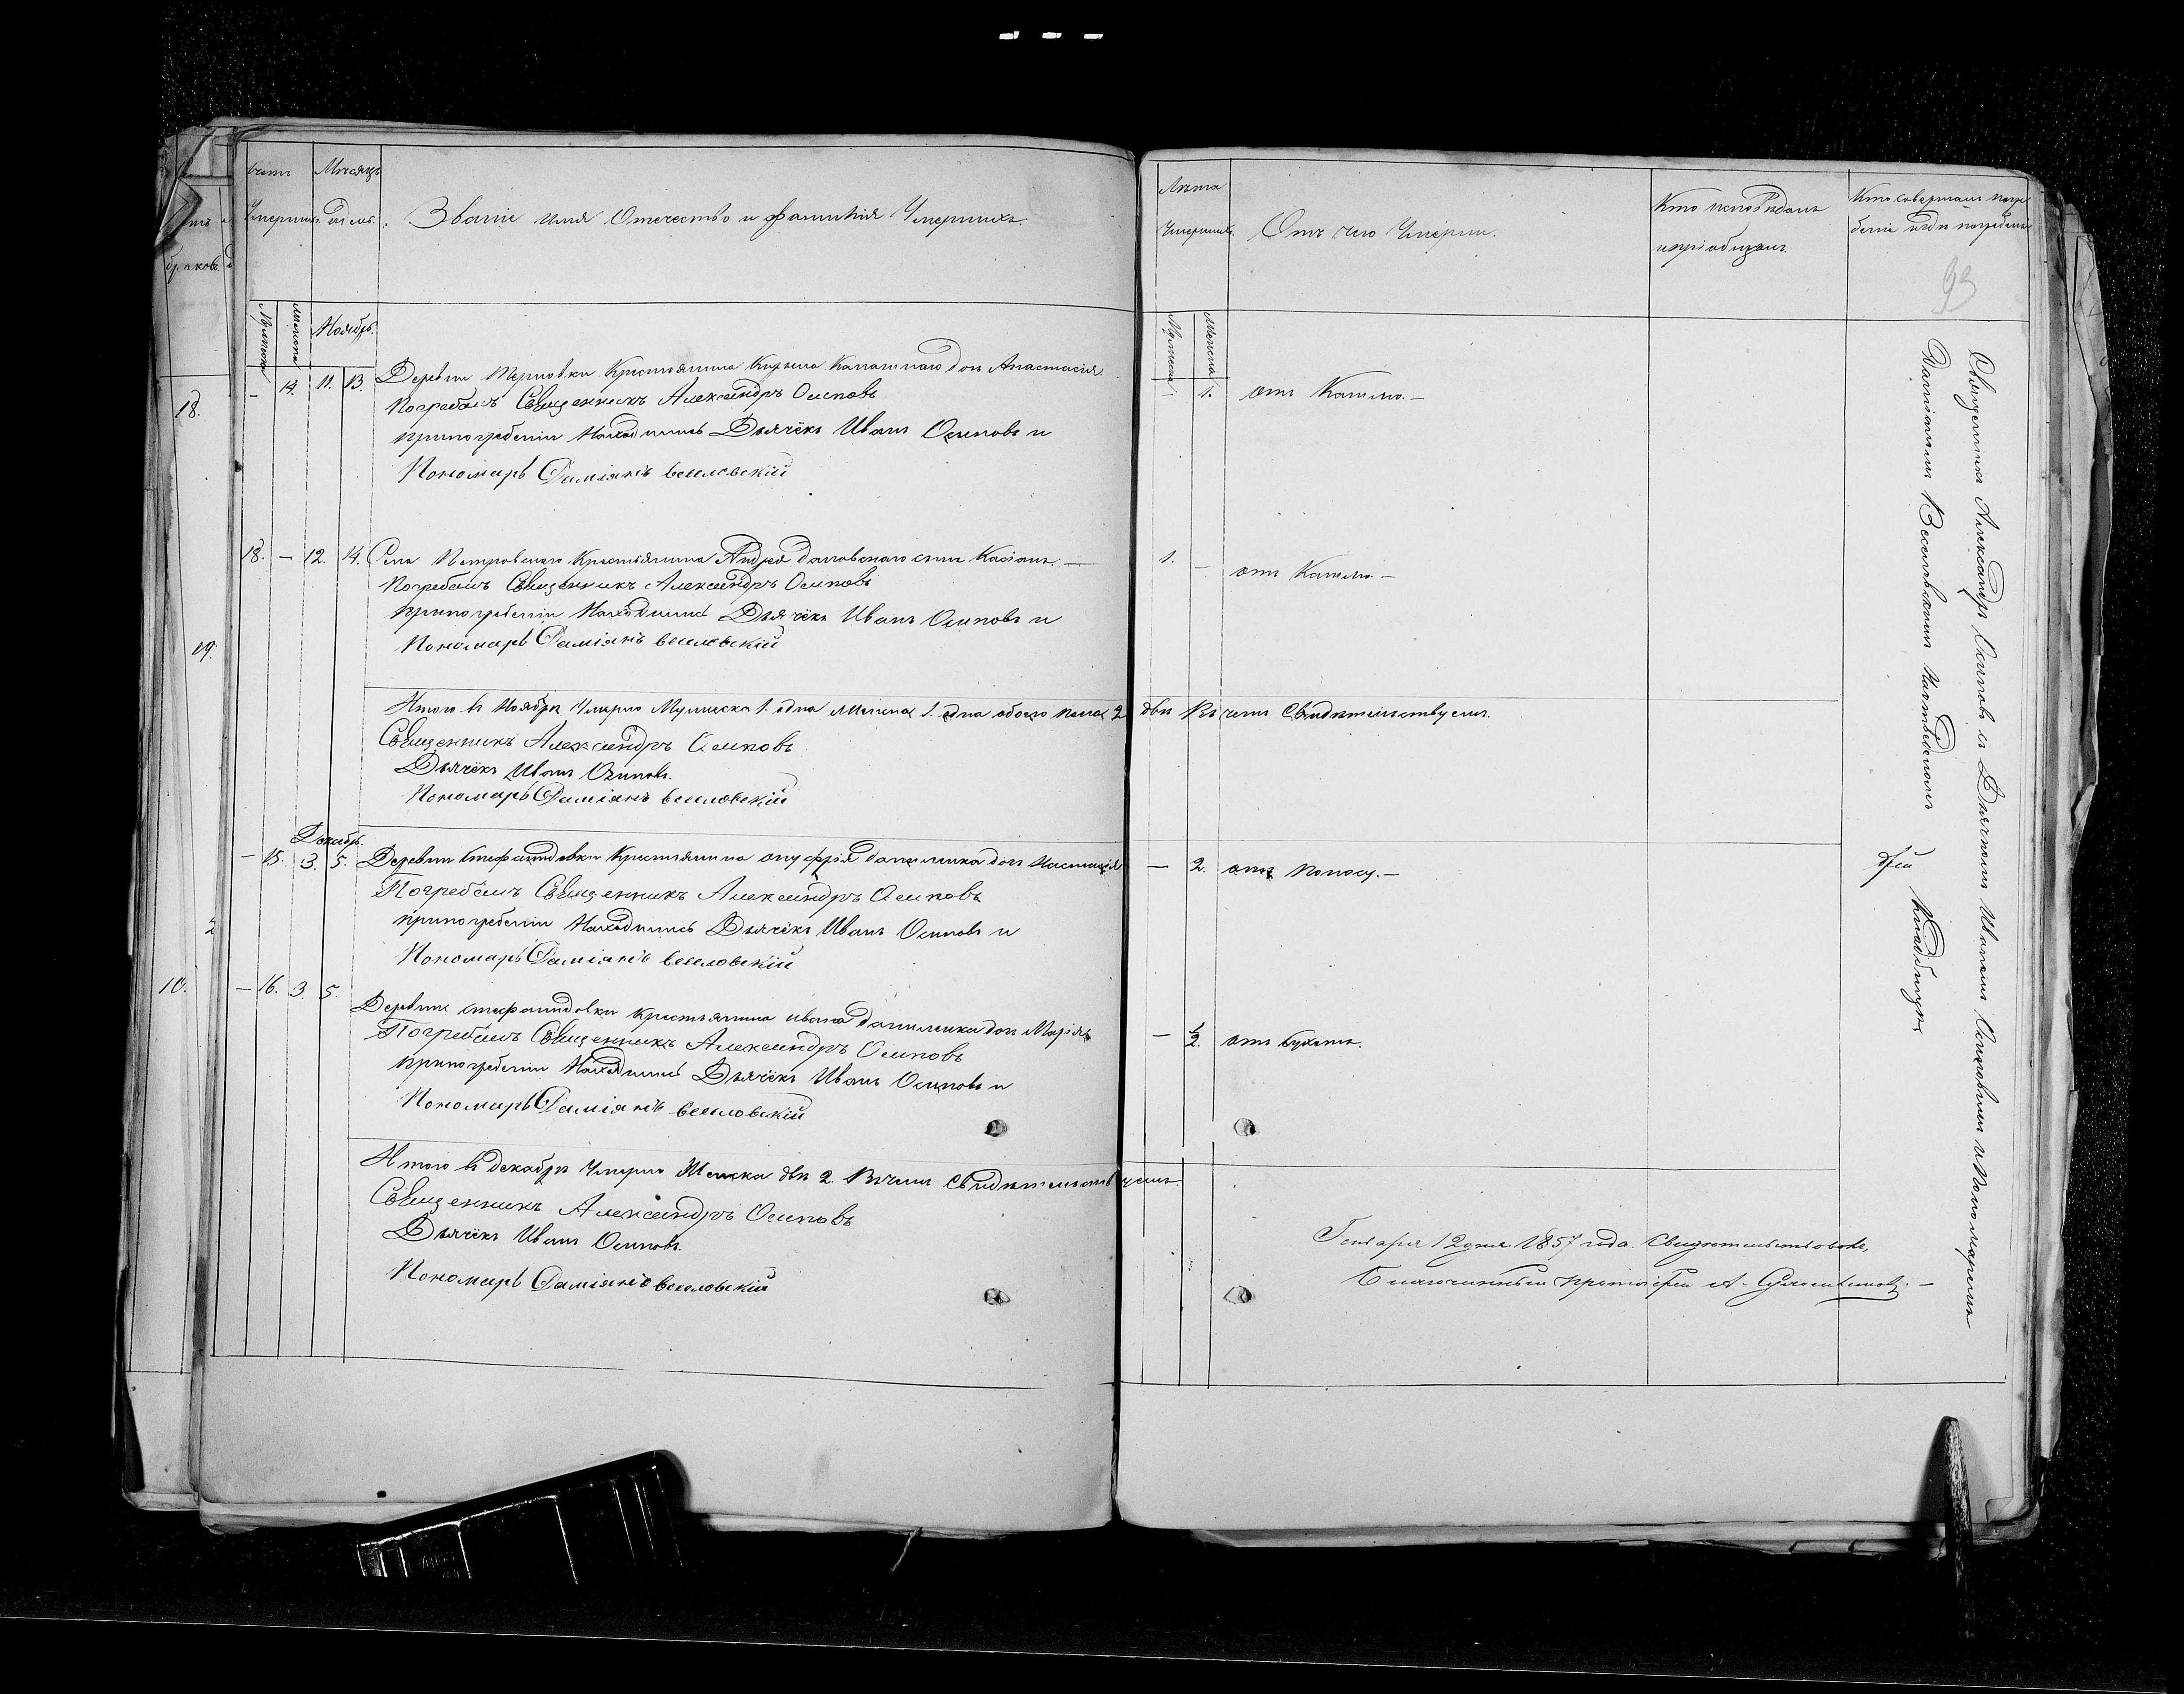 Счетъ Умершихъ.
Мѣсяцъ и день.
Званіе имя Отечество и фамилія Умершихъ.
Лѣта Умершихъ.
Отъ чего Умерли.
Кто исповѣдалъ
и пріобщалъ.
Кто совершалъ погре
беніе и гдѣ погребены
93
Мужеска
Женска
Ноябрь.
Мужеска
Женска
— 14. 11. 13. Деревни Терновки Крестьянина дочь Анастасія. — 1. отъ Кашлю.—
Погребалъ Священникъ Александръ Осиповъ
при погребеніи Находились Дьячёкъ Иванъ Осиповъ и
Пономарь Даміанъ веселовскій
18. — 12. 14. Села Петровскаго Крестьянина Андрея сынъ Касіанъ.— 1. — отъ Кашлю.—
Погребалъ Священникъ Александръ Осиповъ
при погребеніи Находились Дьячёкъ Иванъ Осиповъ и
Пономарь Даміанъ веселовскій
Итого въ Ноябрѣ Умерло Мужеска 1. одна Женска 1. одна обоего пола 2 двѣ Въ чемъ Свидѣтельствуемъ.
Священникъ Александръ Осиповъ
Дьячёкъ Иванъ Осиповъ.
Пономарь Даміанъ веселовскій
Декабрь.
— 15. 3. 5. Деревни Стефанидовки Крестьянина онуфрія данилика дочь Настасія — 2. отъ Поносу.—
Погребалъ Священникъ Александръ Осиповъ
при погребеніи Находились Дьячёкъ Иванъ Осиповъ и
Пономарь Даміанъ веселовскій
— 16. 3. 5. Деревни стефанидовки крестьянина ивана данилика дочь Марія — 1/2. отъ
Погребалъ Священникъ Александръ Осиповъ
при погребеніи Находились Дьячёкъ Иванъ Осиповъ и
Пономарь Даміанъ веселовскій
Итого въ декабрѣ Умерло Женска двѣ 2. Въ чемъ Свидѣтельствуемъ.
Священникъ Александръ Осиповъ
Дьячёкъ Иванъ Осиповъ.
Пономарь Даміанъ веселовскій
Генваря 12 дня 1857 года. Свидетельствовалъ,
Благочинный протоіерей А.
Священникъ Александръ Осиповъ съ Дьячкомъ Иваномъ Осиповымъ и Пономаремъ
Даміаномъ Веселовскимъ На отведеномъ
Кладбищѣ
18.
19.
10.